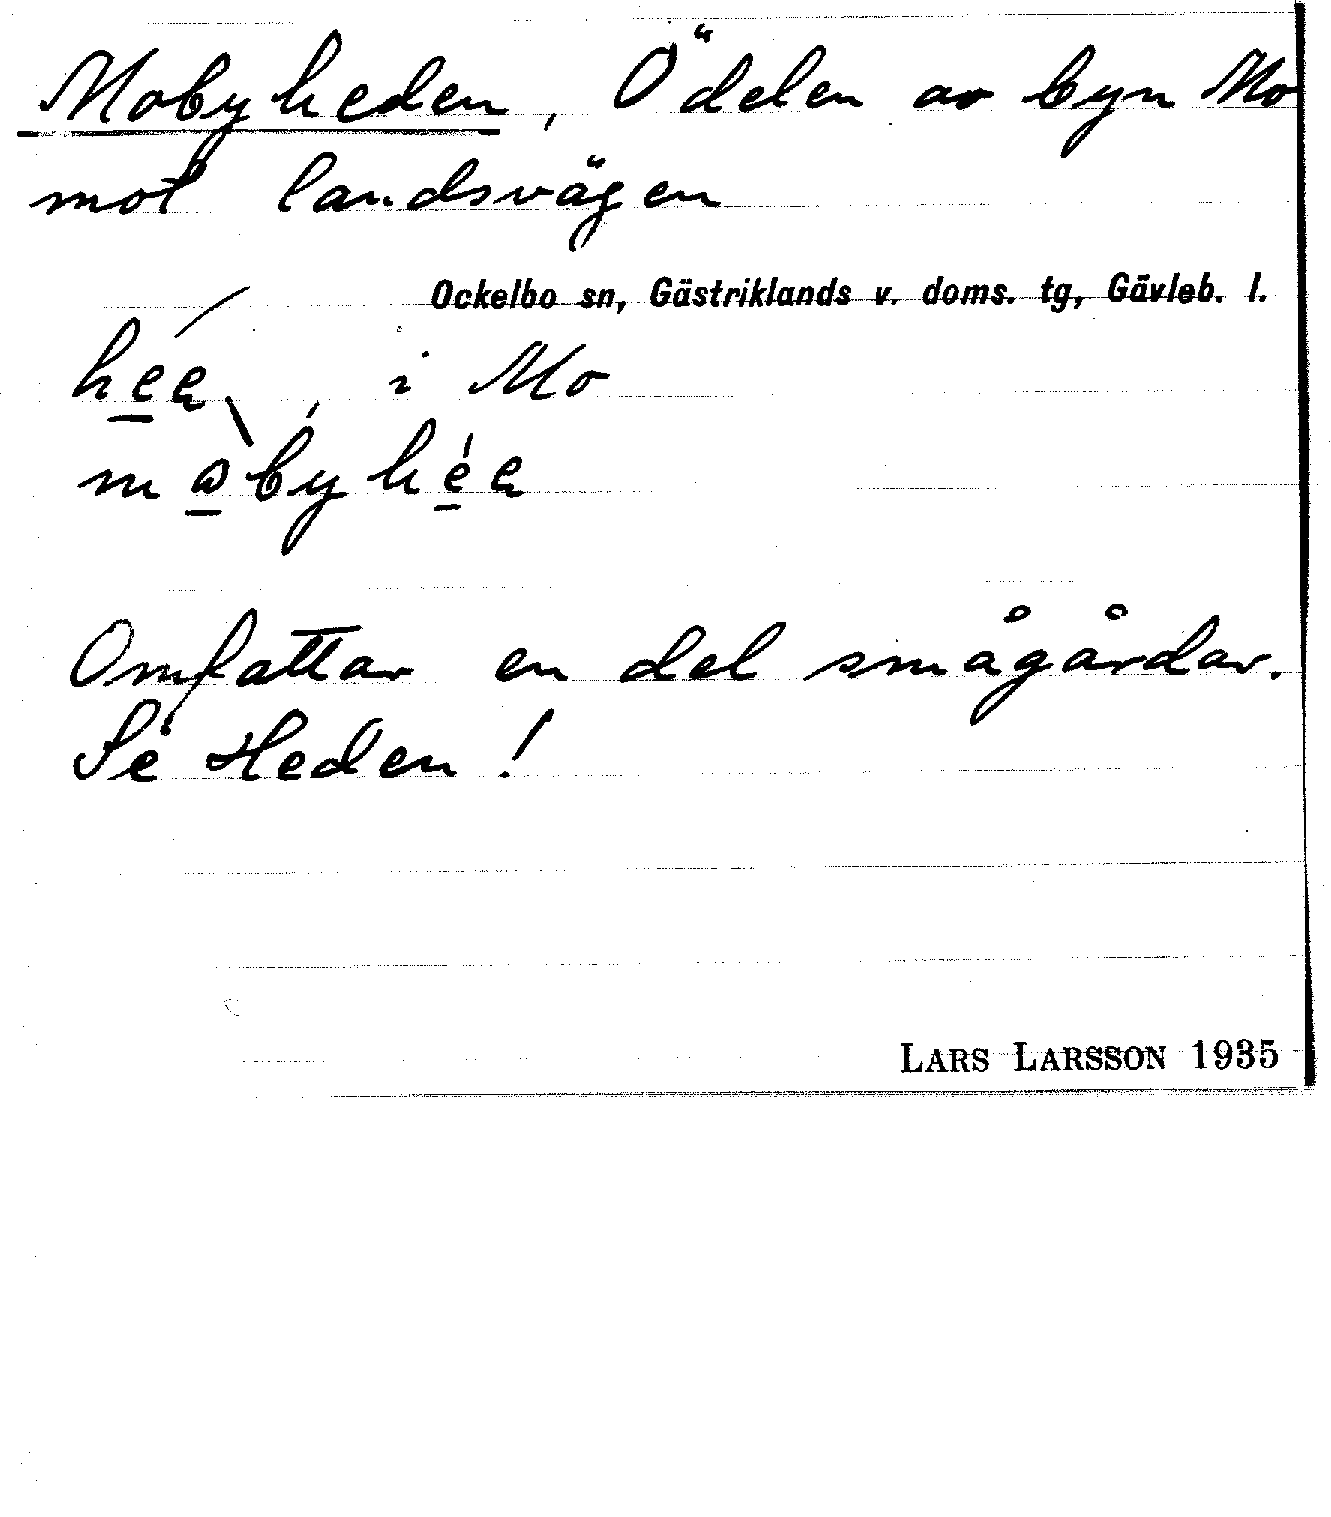 Mobyheden, Ödelen av byn Mo
mot landsvägen
Ockelbo sn, Gästriklands v. doms. tg, Gävleb. l.
i Mo
Omfattar en del smågårdar.
Se Heden!
LARS LARSSON 1935